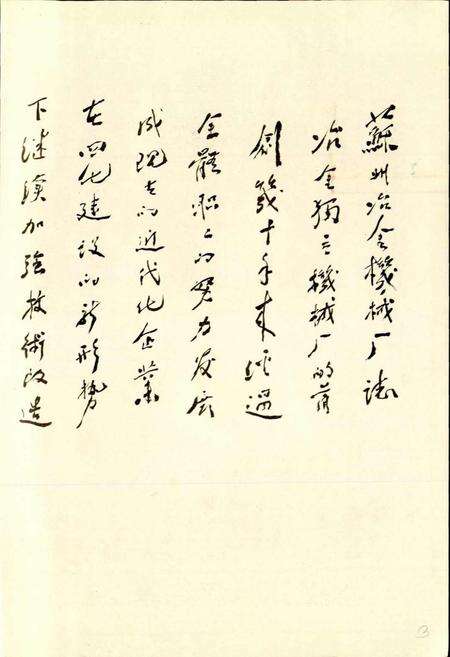 蘇州冶金機械厂誌
冶金独立機械厂的首
創幾十年来經過
全體職工的努力发展
成現在的近代化企業
在四化建设的新形勢
下继续加強技術改造
3